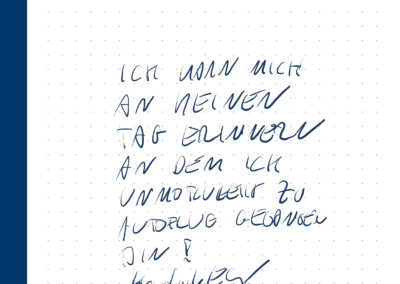 ICH KANN MICH
AN KEINEN
TAG ERINNERN
AN DEM ICH
UNMOTIVIERT ZU
AUTOFLUG GEGANGEN
BIN !